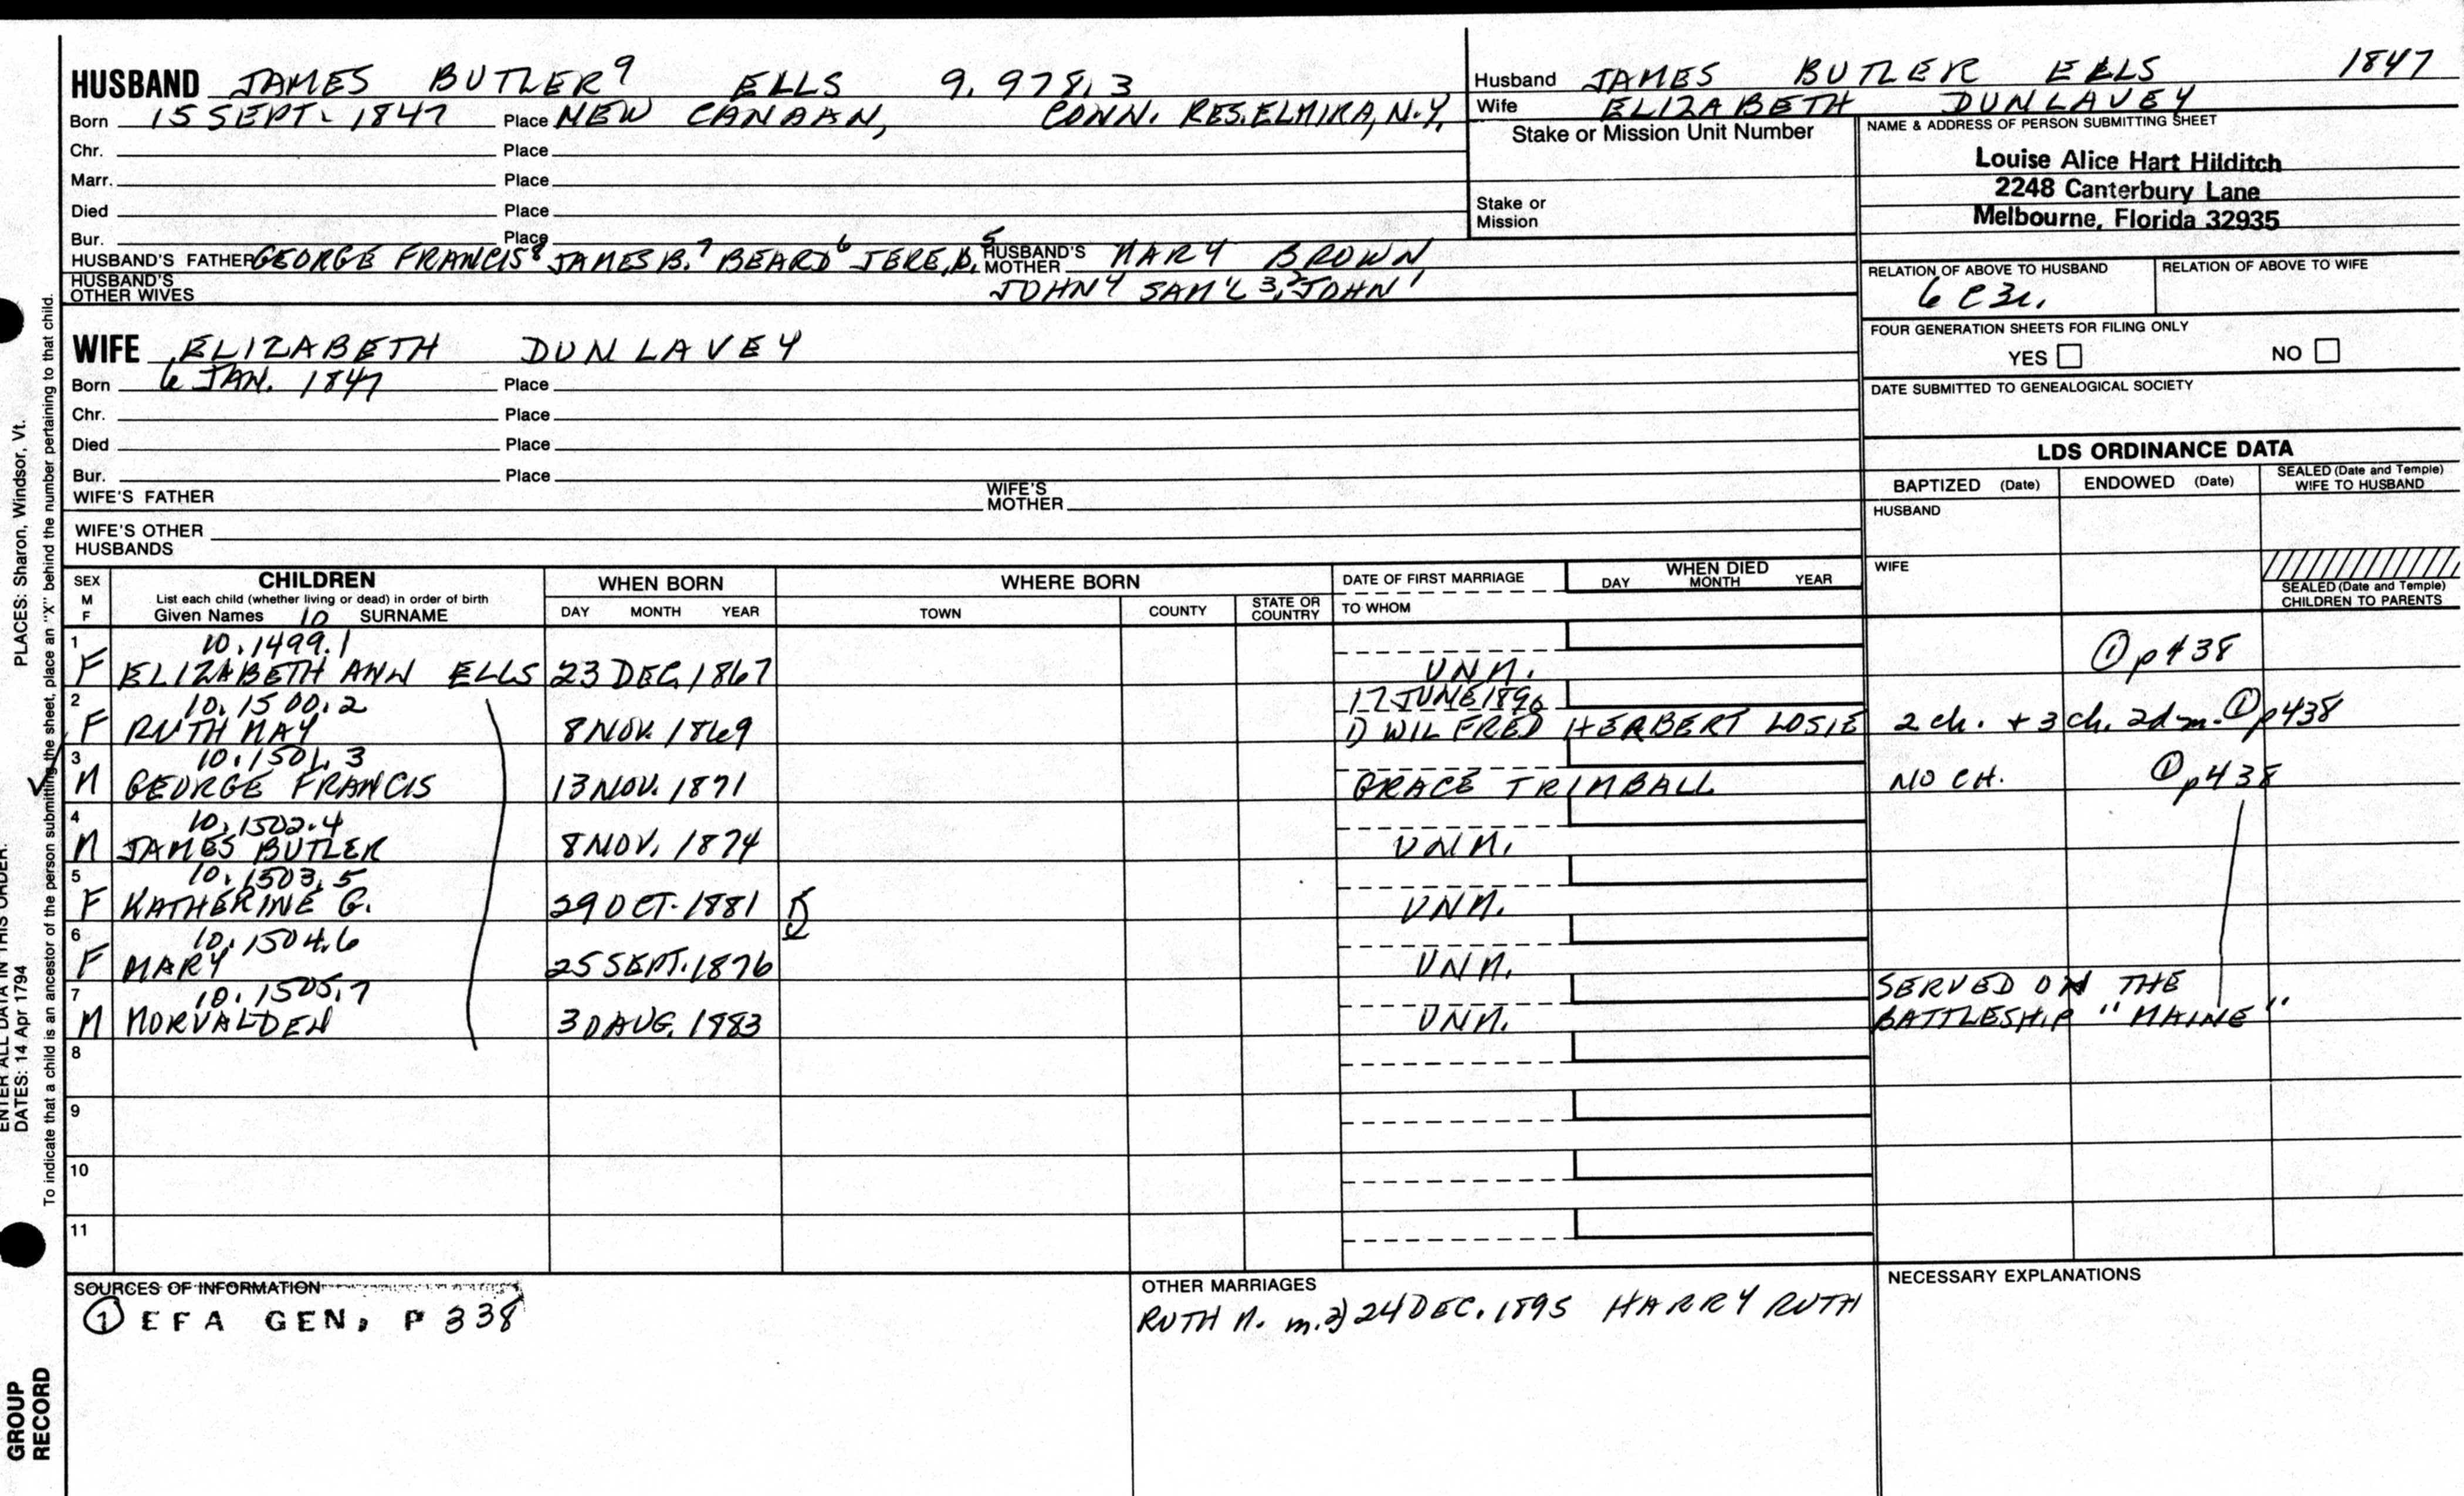 HUSBAND JAMES BUTLER⁹ ELLS 9.978.3
Born 15 SEPT. 1847 Place NEW CANAAN, CONN. RES. ELMIRA, N.Y.
Chr. Place
Marr. Place
Died Place
Bur. Place
HUSBAND'S FATHER GEORGE FRANCIS⁸ JAMES B.⁷ BEARD⁶ JERE. B.⁵ HUSBAND'S MOTHER MARY BROWN
HUSBAND'S OTHER WIVES JOHN⁴ SAM'L³,² JOHN¹
WIFE ELIZABETH DUNLAVEY
Born 6 JAN. 1847 Place
Chr. Place
Died Place
Bur. Place
WIFE'S FATHER WIFE'S MOTHER
WIFE'S OTHER HUSBANDS
Husband JAMES BUTLER ELLS 1847
Wife ELIZABETH DUNLAVEY
Stake or Mission Unit Number
Stake or Mission
NAME & ADDRESS OF PERSON SUBMITTING SHEET
Louise Alice Hart Hilditch
2248 Canterbury Lane
Melbourne, Florida 32935
RELATION OF ABOVE TO HUSBAND RELATION OF ABOVE TO WIFE
6 C 3r.
FOUR GENERATION SHEETS FOR FILING ONLY
YES NO
DATE SUBMITTED TO GENEALOGICAL SOCIETY
LDS ORDINANCE DATA
BAPTIZED (Date) ENDOWED (Date) SEALED (Date and Temple) WIFE TO HUSBAND
HUSBAND
WIFE
SEALED (Date and Temple) CHILDREN TO PARENTS
SEX M F CHILDREN WHEN BORN WHERE BORN DATE OF FIRST MARRIAGE WHEN DIED
List each child (whether living or dead) in order of birth
Given Names 10 SURNAME DAY MONTH YEAR TOWN COUNTY STATE OR COUNTRY TO WHOM DAY MONTH YEAR
1 10.1499.1
F ELIZABETH ANN ELLS 23 DEC. 1867 UNM. ① p438
2 10.1500.2 17 JUNE 1896
F RUTH MAY 8 NOV. 1869 1) WILFRED HERBERT LOSIE 2 ch. + 3 ch. 2d m. ① p438
3 10.1501.3
M GEORGE FRANCIS 13 NOV. 1871 GRACE TRIMBALL NO CH. ① p438
4 10.1502.4
M JAMES BUTLER 8 NOV. 1874 UNM.
5 10.1503.5
F KATHERINE G. 29 OCT. 1881 UNM.
6 10.1504.6
F MARY 25 SEPT. 1876 UNM.
7 10.1505.7 SERVED ON THE
M MORVALDEN 30 AUG. 1883 UNM. BATTLESHIP "MAINE"
8
9
10
11
SOURCES OF INFORMATION
① EFA GEN, P 338
OTHER MARRIAGES
RUTH M. m. 2) 24 DEC. 1895 HARRY RUTH
NECESSARY EXPLANATIONS
PLACES: Sharon, Windsor, Vt.
ENTER ALL DATA IN THIS ORDER:
DATES: 14 Apr 1794
To indicate that a child is an ancestor of the person submitting the sheet, place an "X" behind the number pertaining to that child.
GROUP RECORD